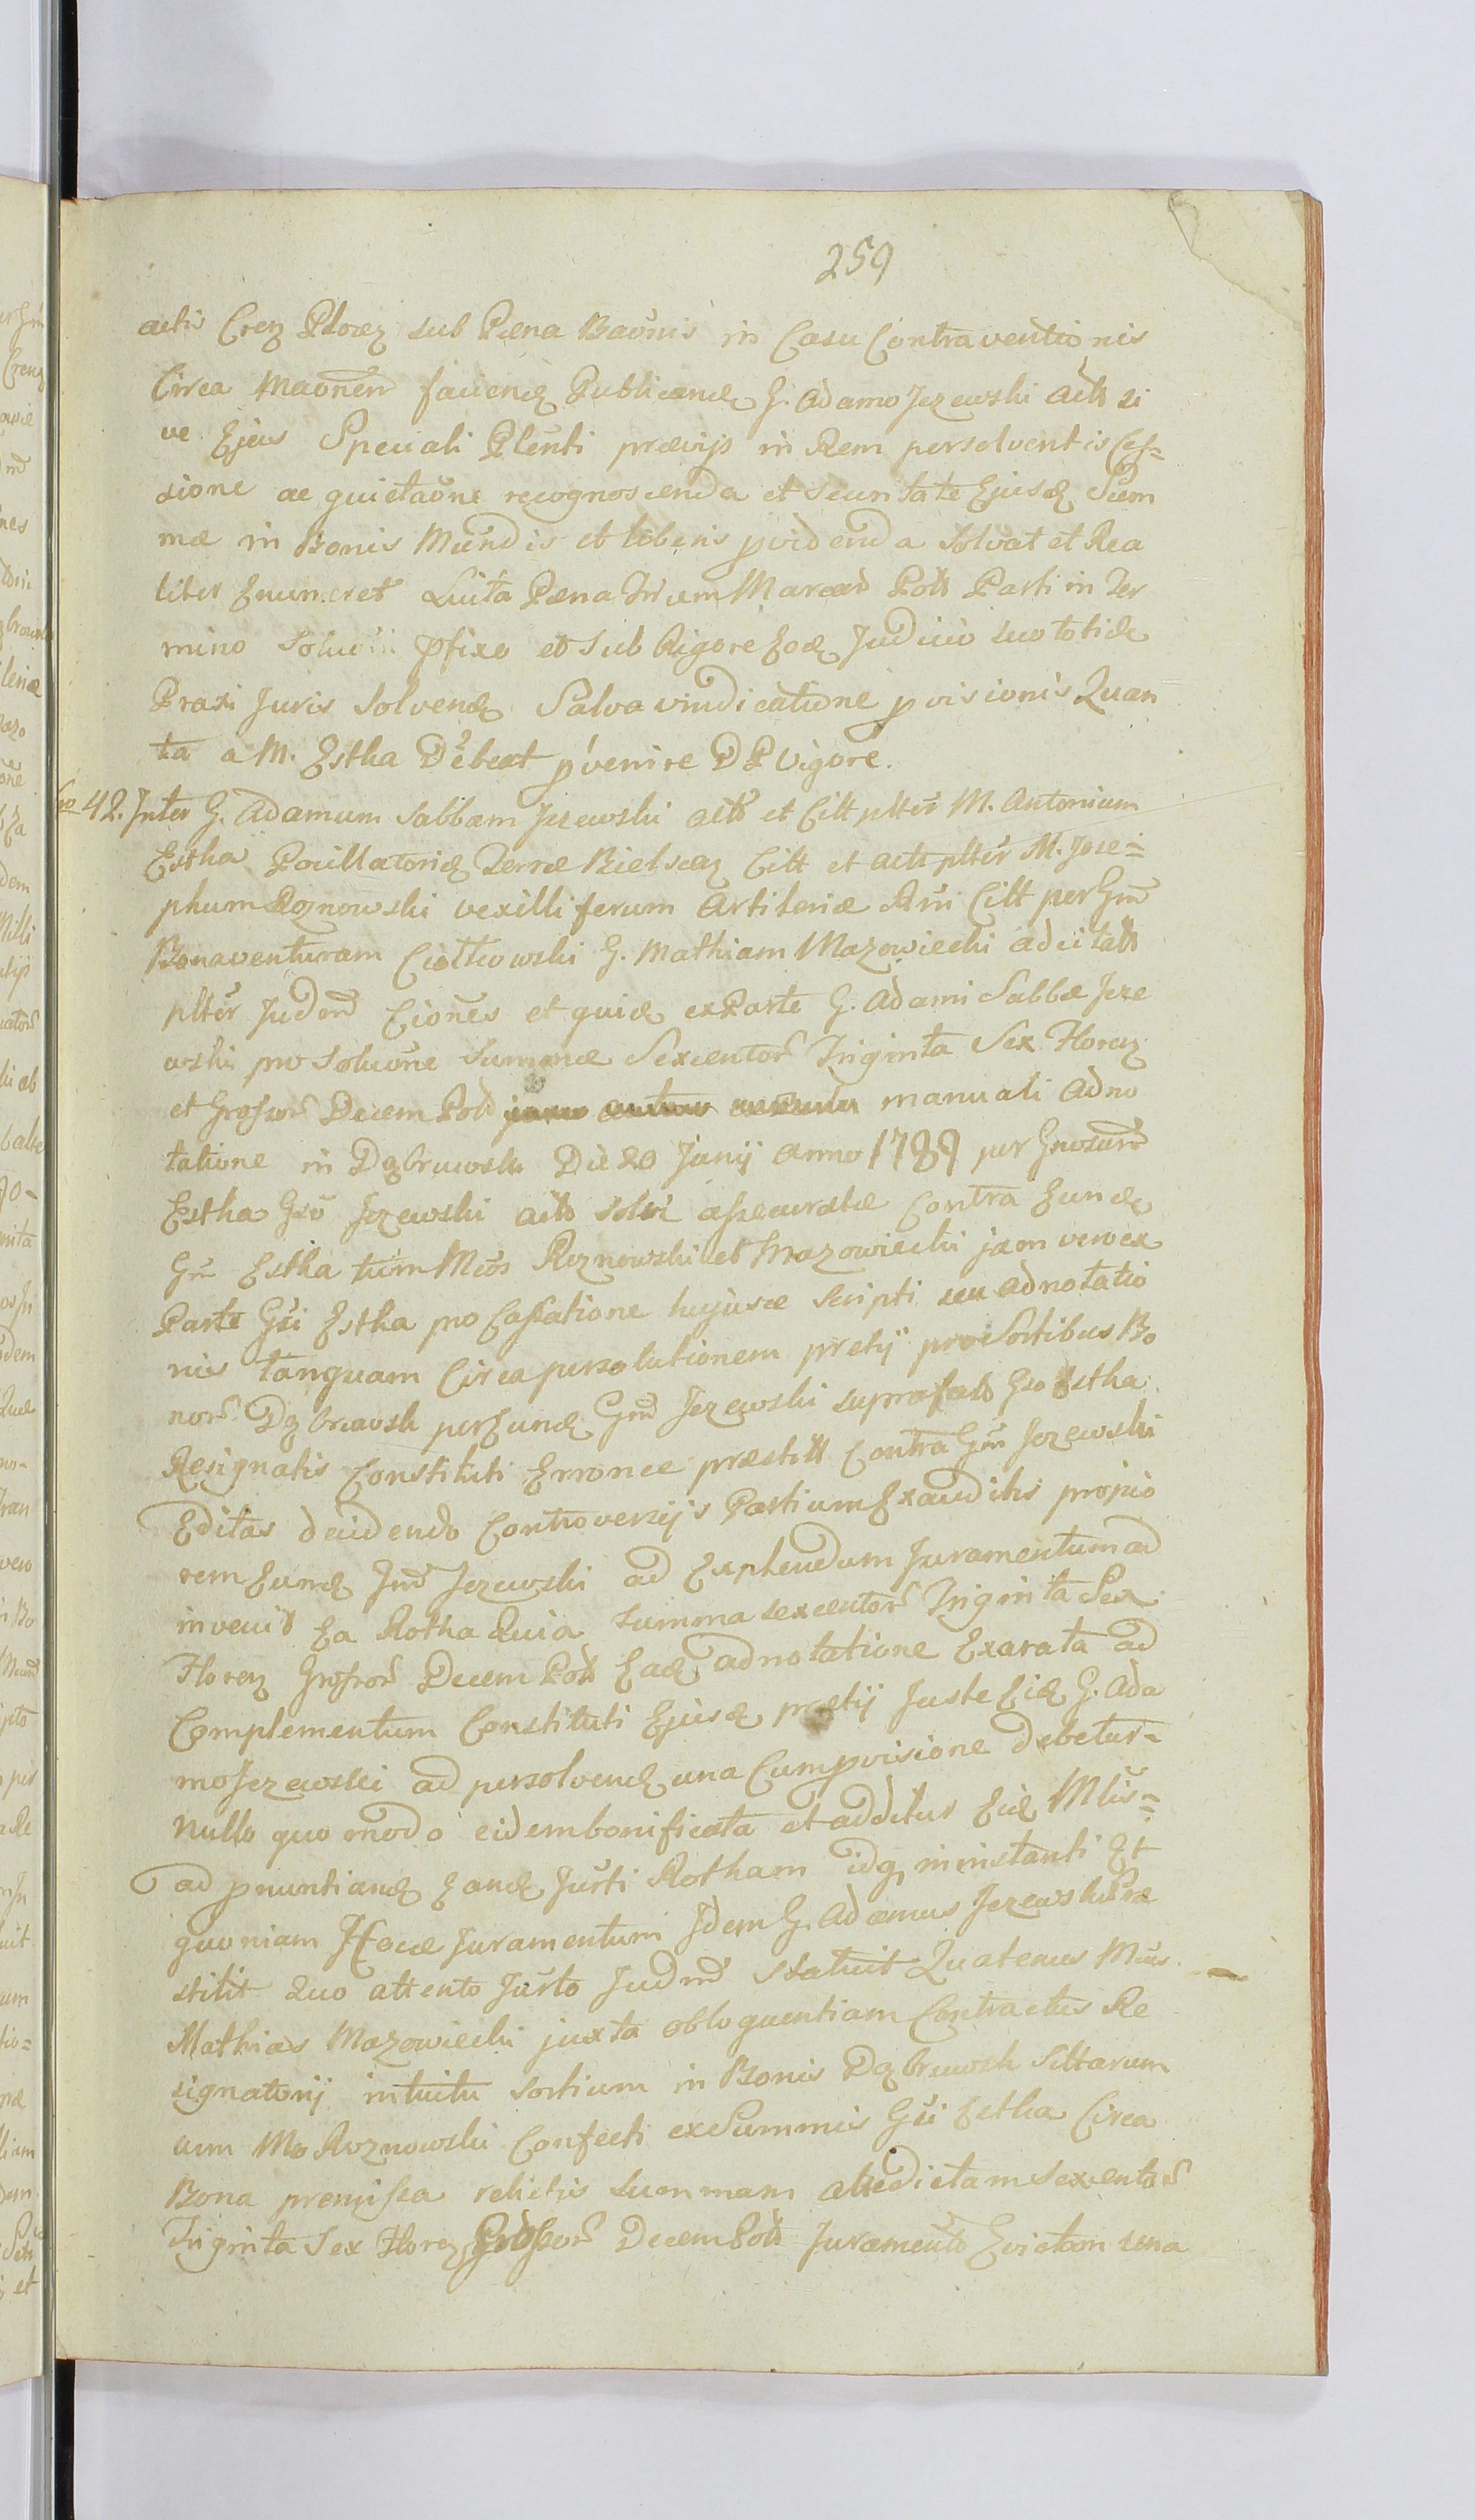 259
actis Crez Plocez sub Pæna Baönis in Casu Contraventionis
Circa Maönem faciendꝫ Publicandꝫ G. Adamo Jezewski actò si
ve Ejus Speciali Plënti prævijs in Rem persolventis Ceſ=
sione ac quietaöne recognoscenda et securitate Ejusdꝫ Sum
mæ in Bonis Mundis et liberis pvidenda Solvat et Rea
liter Enumeret Luita Pæna Trium Marcar Poll Parti in Ter
mino pfixo et sub Rigore Eodꝫ Judicio suo totidꝫ
Praxi Juris Solvendꝫ Salva vindicatione pvisionis Quan
ta a M. Estha Debeat pvenire D P Vigore.
42. Inter G. Adamum Sabbam Jezewski actò et Citt plter M. Antonium
Estha Pocillatoridꝫ Terræ Bielscez Citt et actò plter M. Jose=
phum Roznowski vexilliferum Artileriæ Citt per Gm
Bonaventuram Ciołkowski G. Mathiam Mazowiecki adcitatt
plter Judm Ciones et quidꝫ ex Parte G. Adami Sabbæ Jeze
wski pro Solucöne Summæ Sexcentor Triginta Sex Florez
et Groſsor Decem Poll manuali Adno
tatione in Dąbruwsk Die 20 Junij Anno 1789 per Gnosum
Estha Gso Jezewski actò Solvi aſsecuratæ Contra Eundꝫ
Gm Estha tum Mcos Roznowski et Mazowiecki jam vero ex
Parte Gsi Estha pro Caſsatione hujusce Scripti seu adnotatio
nis tanquam Circa persolutionem pretij pro Sortibus Bo
nor Dąbruwsk per Eundꝫ Gm Jezewski suprafato Gso Estha
Resignatis Constituti Erronee præstitt Contra Gm Jezewski
Editas decidendo Controversijs Partium Exauditis propio
rem Eundꝫ Gm Jezewski ad Explendum Juramentum ad
invenit Ea Rotha Quia Summa sexcentor Triginta Sex
Florez Groſsor Decem Poll Eadꝫ adnotatione Exarata ad
Complementum Constituti Ejusdꝫ pretij Juste Eidꝫ G. Ada
mo Jezewski ad persolvendꝫ una Cum pvisione debetur=
nullo quo modo eidem bonificata et additus Eidꝫ Mlis=
ad pnuntiandꝫ Eandꝫ Jurti Rotham idq in instanti Et
quoniam Hocce Juramentum Idem G. Adamus Jezewski Præ
stitit Quo attento Jurto Judm Statuit Quatenus Mcus
Mathias Mazowiecki juxta obloquentiam Contractus Re
signatorij intuitu Sortium in Bonis Dąbruwsk Sittarum
cum Mo Roznowski Confecti ex Summis Gsi Estha Circa
Bona premiſsa relictis Summam abedictam Sexcentor
Triginta Sex Florez Groſsor Decem Poll Juramento Evictam una